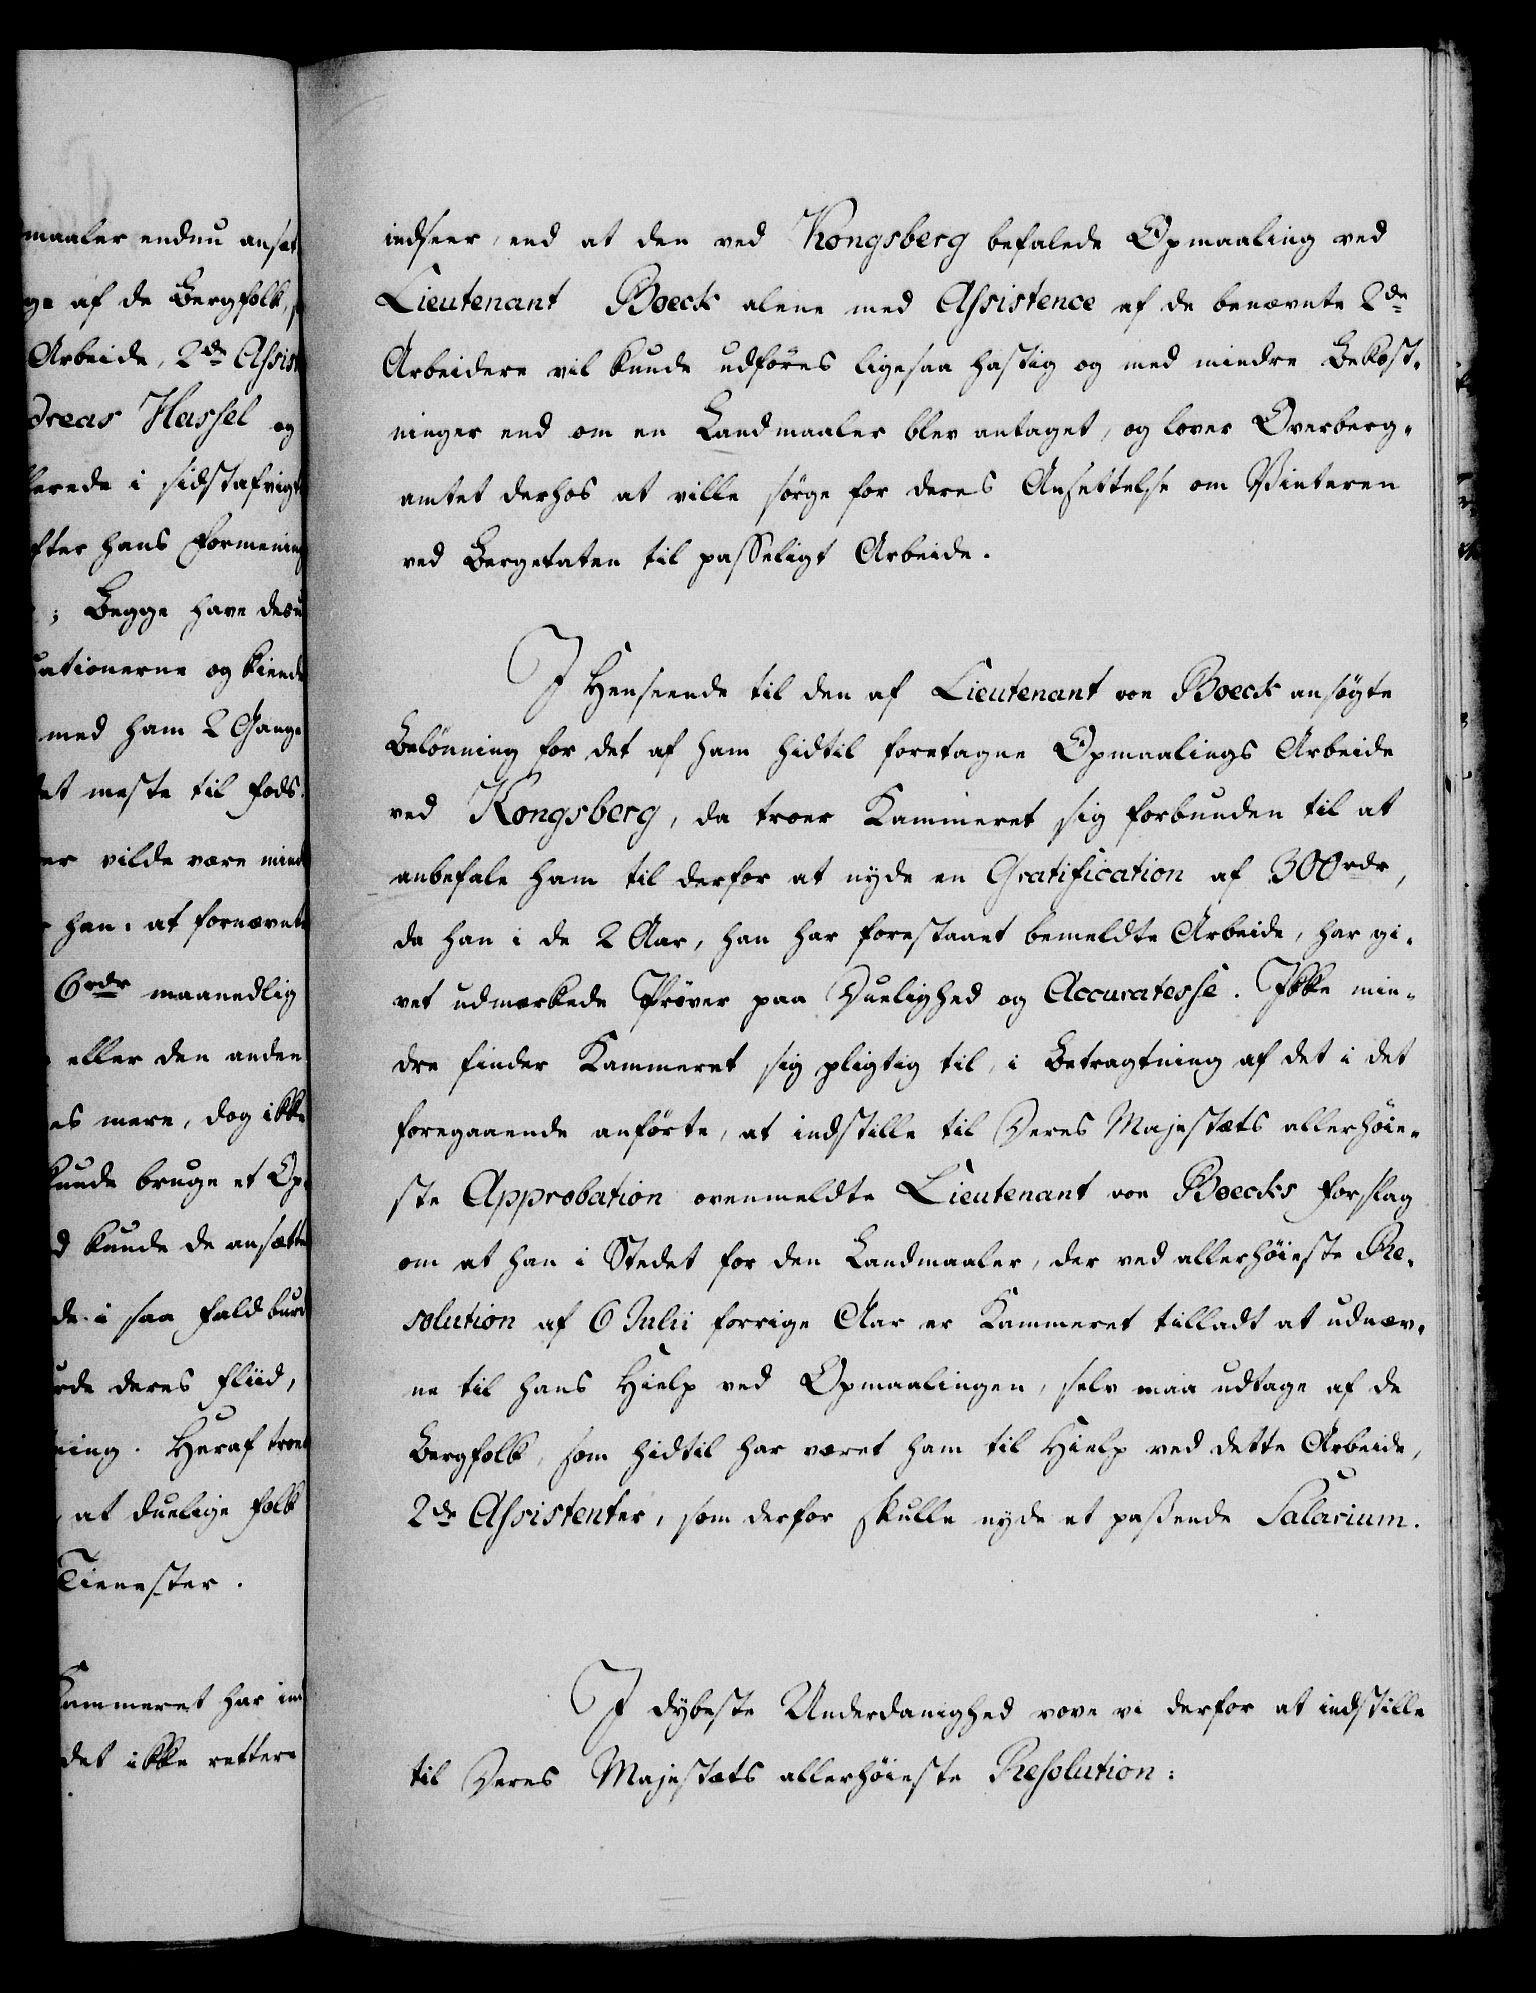 maaler endnu ansat
af de Bergfolk,
Arbeide, 2de Assis
dreas Hassel og
lerede i sidstafvigt
fter hans Formening
; Begge have desu
ationerne og kiende
med ham 2 Gange
et meste til Fods.
er vilde være mind
han, at fornævnte
6 rdr maanedlig
eller den anden
es mere, dog ikke
kunde bruge et Op
d kunde de ansætte
de i saa Fald burd
rde deres Fliid,
ning. Heraf troer
at duelige Folk
Tienester.
Kammeret har ind
det ikke rettere
indseer, end at den ved Kongsberg befalede Opmaaling ved
Lieutenant Boeck alene med Assistence af de benævnte 2de
Arbeidere vil kunde udføres ligesaa hastig og med mindre Bekost-
ninger end om en Landmaaler blev antaget, og lover Overberg-
amtet derhos at ville sørge for deres Ansettelse om Vinteren
ved Bergetaten til passeligt Arbeide.
I Henseende til den af Lieutenant von Boeck ansøgte
Belønning for det af ham hidtil foretagne Opmaalings Arbeide
ved Kongsberg, da troer Kammeret sig forbunden til at
anbefale ham til derfor at nyde en Gratification af 300 rdr,
da han i de 2 Aar, han har forestaaet bemeldte Arbeide, har gi-
vet udmærkede Prøver paa Duelighed og Accuratesse. Ikke min-
dre finder Kammeret sig pligtig til, i Betragtning af det i det
foregaaende anførte, at indstille til Deres Majestæts allerhøie-
ste Approbation ovenmeldte Lieutenant von Boecks Forslag
om at han i Stedet for den Landmaaler, der ved allerhøieste Re-
solution af 6 Julii forrige Aar er Kammeret tilladt at udnæv-
ne til hans Hielp ved Opmaalingen, selv maa udtage af de
Bergfolk, som hidtil har været ham til Hielp ved dette Arbeide,
2de Assistenter, som derfor skulle nyde et passende Salarium.
I dybeste Underdanighed vove vi derfor at indstille
til Deres Majestæts allerhøieste Resolution: